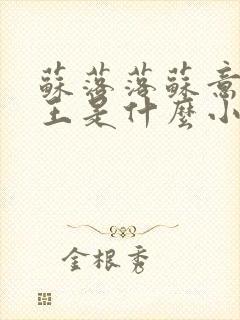 蘇落落蘇意
主是什麼小
金根秀